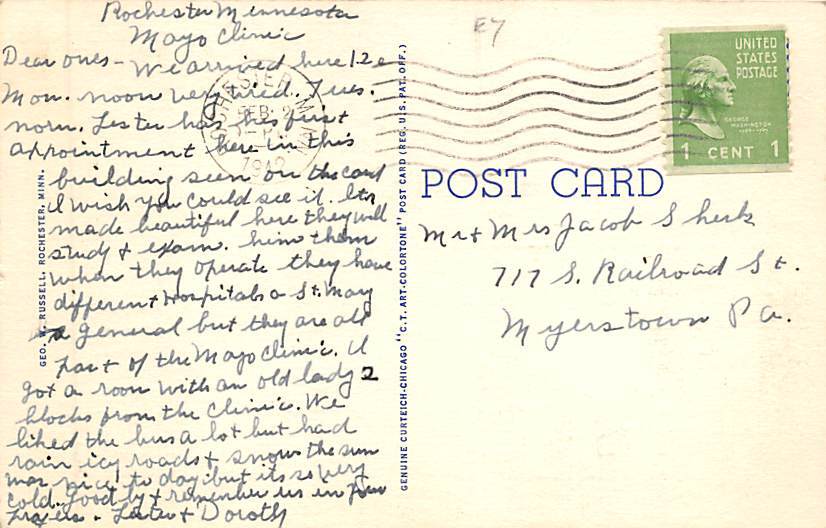 Rochester Minnesota
Mayo Clinic
Dear ones - We arrived here 12 e
Mon. noon very tired. Tues.
norn. Lester has his first
appointment here in this
building seen on the card
I wish you could see it. Its
made beautiful here they will
study & exam. him then
when they operate they have
different Hospitals a St. Mary
& a general but they are all
part of the Mayo Clinic. I
got a room with an old lady 2
blocks from the Clinic. We
liked the bus a lot but had
rain icy roads & snow the sun
was nice to day but its so very
cold. Good by & remember us in your
prayers. Lester & Doroth
GEO. W. RUSSELL, ROCHESTER, MINN.
GENUINE CURTEICH-CHICAGO "C.T. ART-COLORTONE" POST CARD (REG. U.S. PAT. OFF.)
E7
ROCHESTER MINN.
FEB 2
1942
UNITED
STATES
POSTAGE
GEORGE
WASHINGTON
1 CENT 1
POST CARD
Mr & Mrs Jacob Sherk
717 S. Railroad St.
Myerstown Pa.